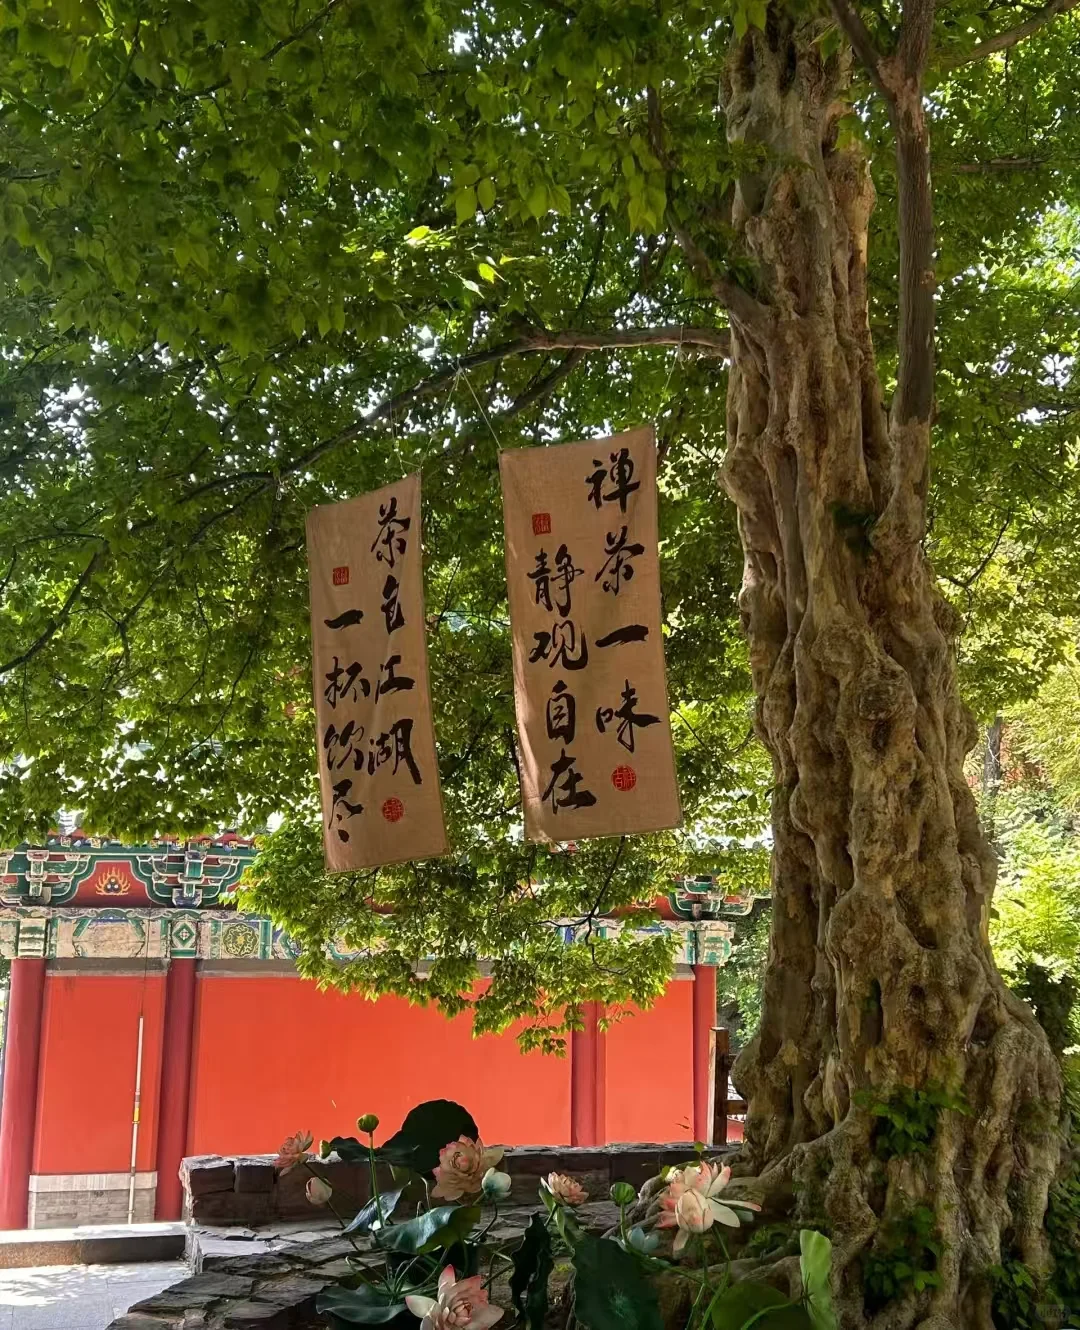 禅茶一味
静观自在
茶包江湖
一杯饮尽